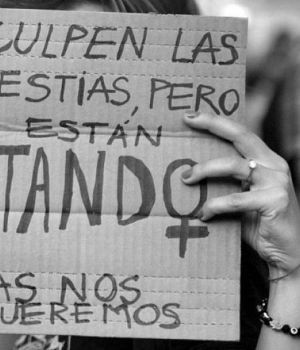 CULPEN LAS
ESTIAS, PERO
ESTÁN
TANDO
AS NOS
QUEREMOS